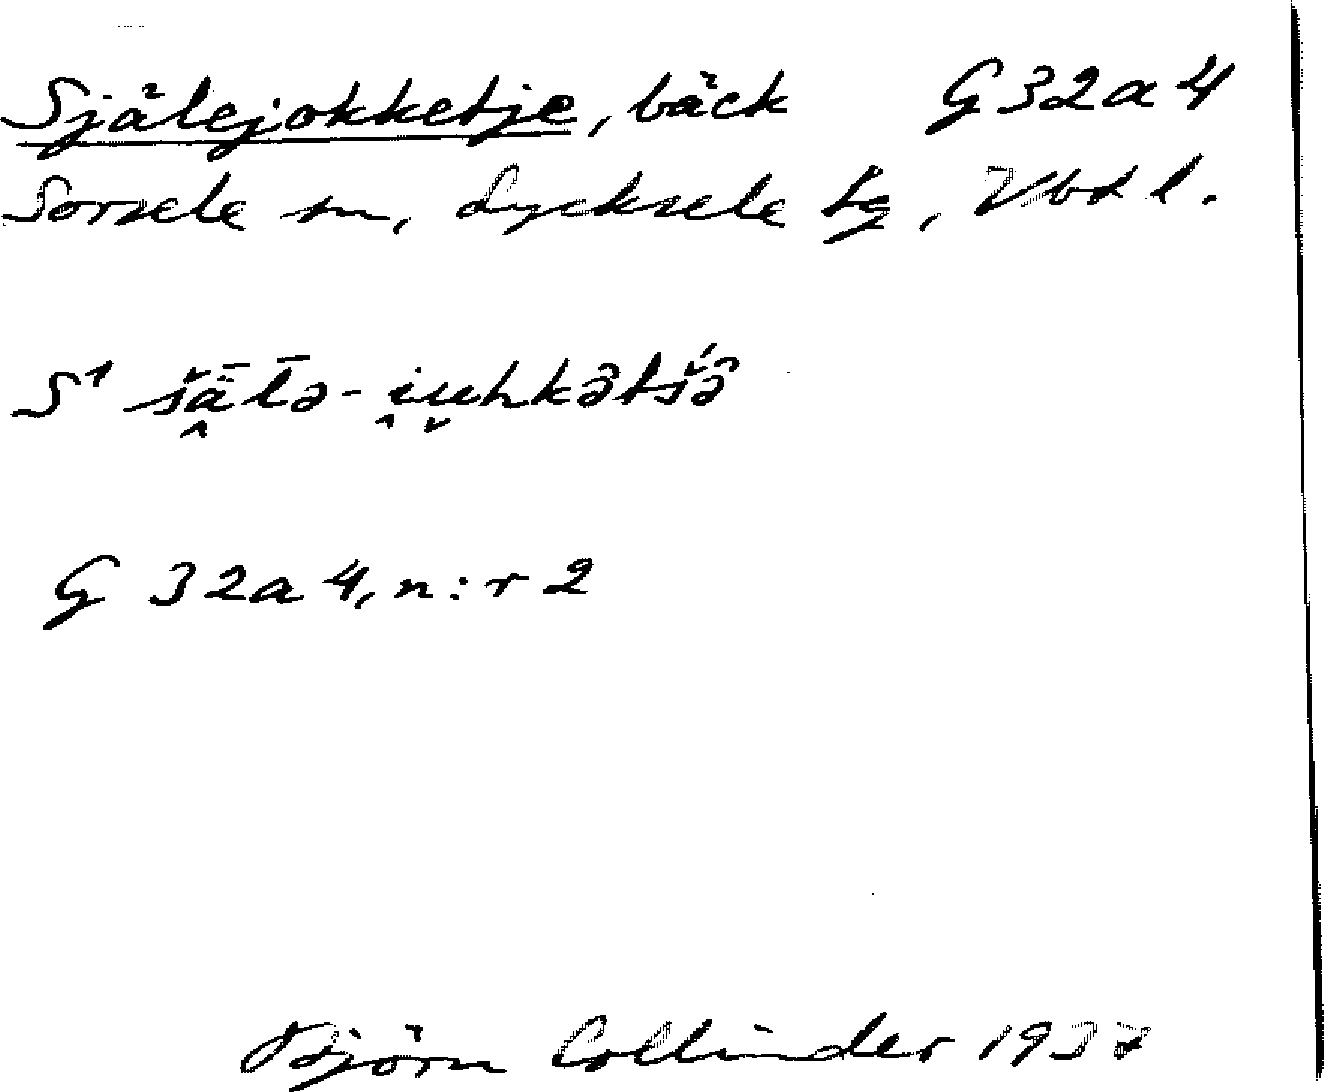 Själejokketje, bäck G32a4
Sorsele sn, Lycksele tg, Vbtl.
S1
G 32a4, n:r 2
Björn Collinder 1937